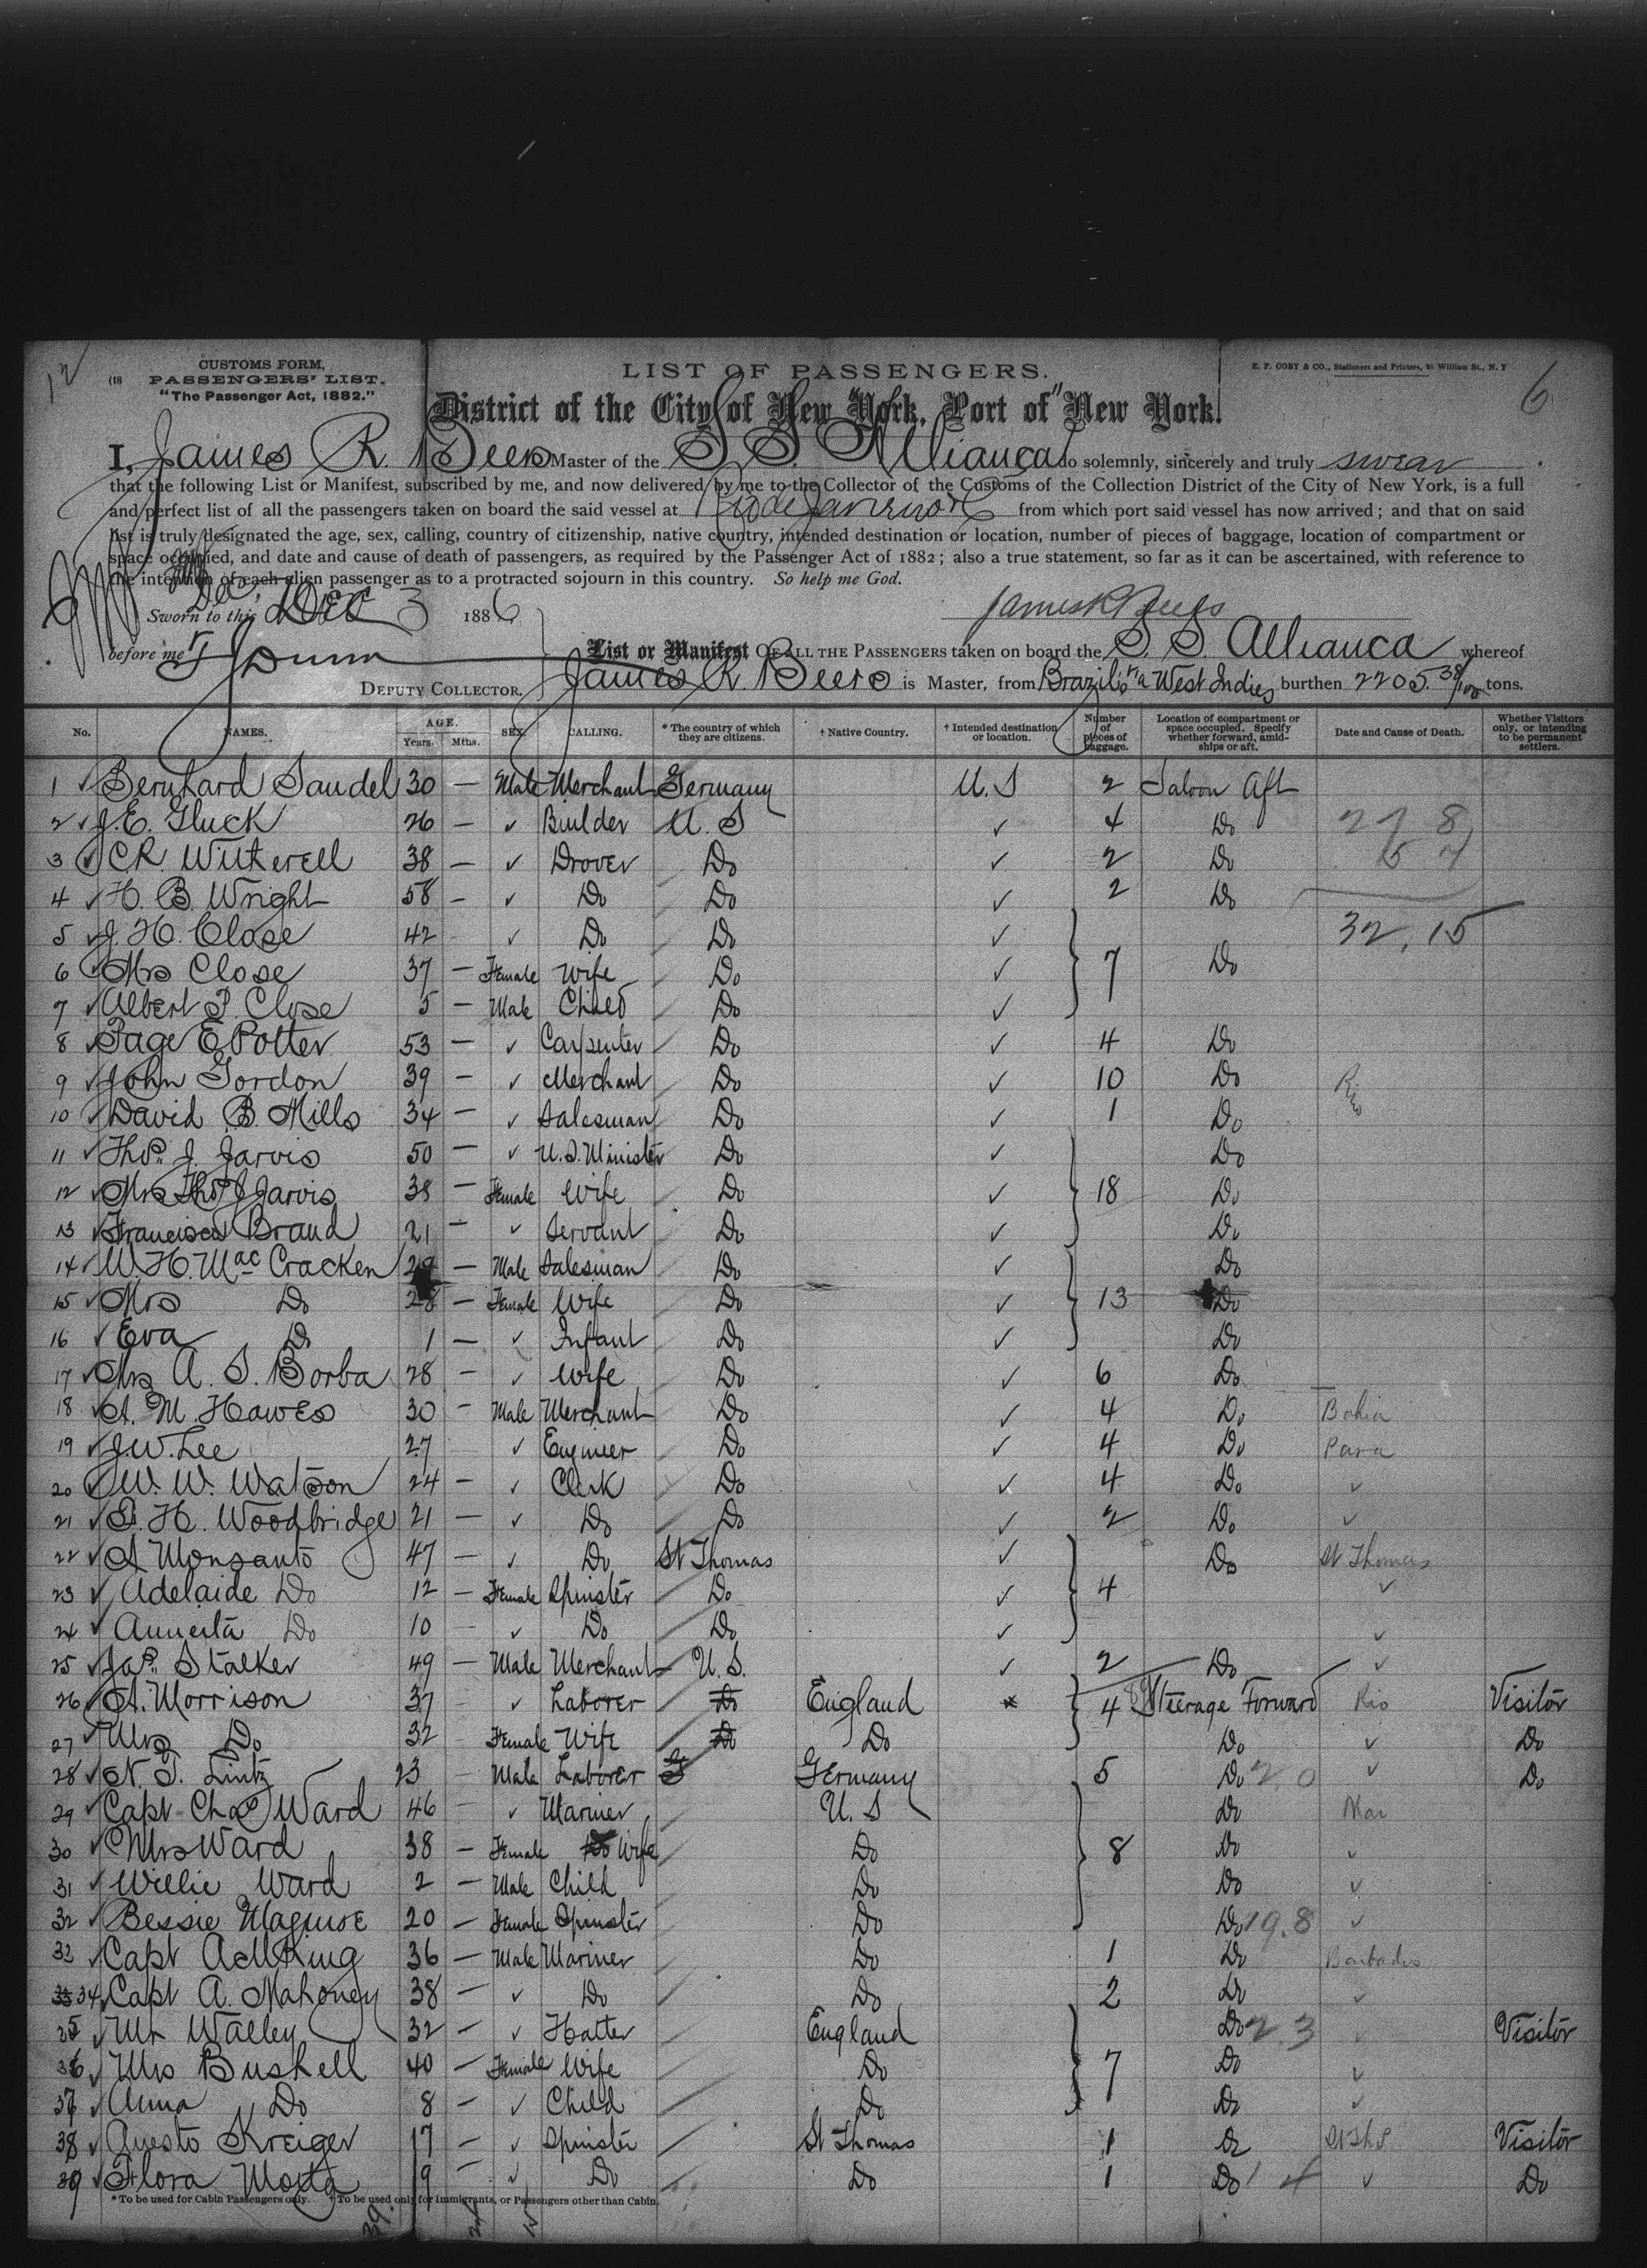 12
CUSTOMS FORM,
(18 PASSENGERS' LIST.
"The Passenger Act, 1882."
LIST OF PASSENGERS.
E. P. COBY & CO., Stationers and Printers, 91 William St., N. Y
6
District of the City of New York, Port of New York.
I, James R. Beers Master of the S S. Allianca do solemnly, sincerely and truly swear
that the following List or Manifest, subscribed by me, and now delivered by me to the Collector of the Customs of the Collection District of the City of New York, is a full
and perfect list of all the passengers taken on board the said vessel at Rio de Janeiro &c from which port said vessel has now arrived; and that on said
list is truly designated the age, sex, calling, country of citizenship, native country, intended destination or location, number of pieces of baggage, location of compartment or
space occupied, and date and cause of death of passengers, as required by the Passenger Act of 1882; also a true statement, so far as it can be ascertained, with reference to
the intention of each alien passenger as to a protracted sojourn in this country. So help me God.
Sworn to this DEC 3 1886
James R Beers
before me Dunn
List or Manifest OF ALL THE PASSENGERS taken on board the S. S. Allianca whereof
DEPUTY COLLECTOR.
James R. Beers is Master, from Brazil via West Indies burthen 2205 38/100 tons.
No. NAMES. AGE. Years. Mths. SEX. CALLING. * The country of which they are citizens. † Native Country. † Intended destination or location. Number of pieces of baggage. Location of compartment or space occupied. Specify whether forward, amidships or aft. Date and Cause of Death. Whether Visitors only, or intending to be permanent settlers.
1 Bernhard Saudel 30 — Male Merchant Germany U. S 2 Saloon Aft
2 J. E. Gluck 26 — ✓ Builder U. S ✓ 4 Do
3 C R. Witherell 38 — ✓ Drover Do ✓ 2 Do
4 H. B. Wright 58 — ✓ Do Do ✓ 2 Do
5 J. H. Close 42 ✓ Do Do ✓ 32,15
6 Mrs Close 37 — Female Wife Do ✓ 7 Do
7 Albert P. Close 5 — Male Child Do ✓
8 Page E Potter 53 — ✓ Carpenter Do ✓ 4 Do
9 John Gordon 39 — ✓ Merchant Do ✓ 10 Do Rio
10 David B. Mills 34 — ✓ Salesman Do ✓ 1 Do
11 Thos. J. Jarvis 50 — ✓ U. S. Minister Do ✓ Do
12 Mrs Thos J Jarvis 38 — Female Wife Do ✓ 18 Do
13 Francisca Braud 21 — ✓ Servant Do ✓ Do
14 W. H. Mac Cracken 29 — Male Salesman Do ✓ Do
15 Mrs Do 28 — Female Wife Do ✓ 13 Do
16 Eva Do 1 — ✓ Infant Do ✓ Do
17 Mrs A. S. Borba 28 — ✓ Wife Do ✓ 6 Do
18 A. M. Hawes 30 — Male Merchant Do ✓ 4 Do Bahia
19 J. W. Lee 27 ✓ Engineer Do ✓ 4 Do Para
20 W. W. Watson 24 — ✓ Clerk Do ✓ 4 Do ✓
21 P. H. Woodbridge 21 — ✓ Do Do ✓ 2 Do ✓
22 A Monsanto 47 — ✓ Do St Thomas ✓ Do St Thomas
23 Adelaide Do 12 — Female Spinster Do ✓ 4 ✓
24 Annerita Do 10 ✓ Do Do ✓ ✓
25 Jas. Stalker 49 — Male Merchant U. S. ✓ 2 Do ✓
26 A. Morrison 37 ✓ Laborer Do England 4 Steerage Forward Rio Visitor
27 Mrs Do 32 Female Wife Do Do Do ✓ Do
28 N. T. Lintz 23 Male Laborer Germany 5 Do 20 ✓ Do
29 Capt Chas Ward 46 ✓ Mariner U. S Do Mar
30 Mrs Ward 38 — Female Wife Do 8 Do ✓
31 Willie Ward 2 — Male Child Do Do ✓
32 Bessie Maguire 20 — Female Spinster Do Do 19.8 ✓
32 Capt A M King 36 — Male Mariner Do 1 Do Barbados
34 Capt A. Mahoney 38 — ✓ Do Do 2 Do ✓
35 Mr Walley 32 — ✓ Hatter England Do 23 ✓ Visitor
36 Mrs Bushell 40 — Female Wife Do 7 Do ✓
37 Anna Do 8 — ✓ Child Do Do ✓
38 Questo Kreiger 17 — ✓ Spinster St Thomas 1 Do St Ths Visitor
39 Flora Mosta 19 — ✓ Do Do 1 Do 14 ✓ Do
* To be used for Cabin Passengers only. † To be used only for Immigrants, or Passengers other than Cabin.
39